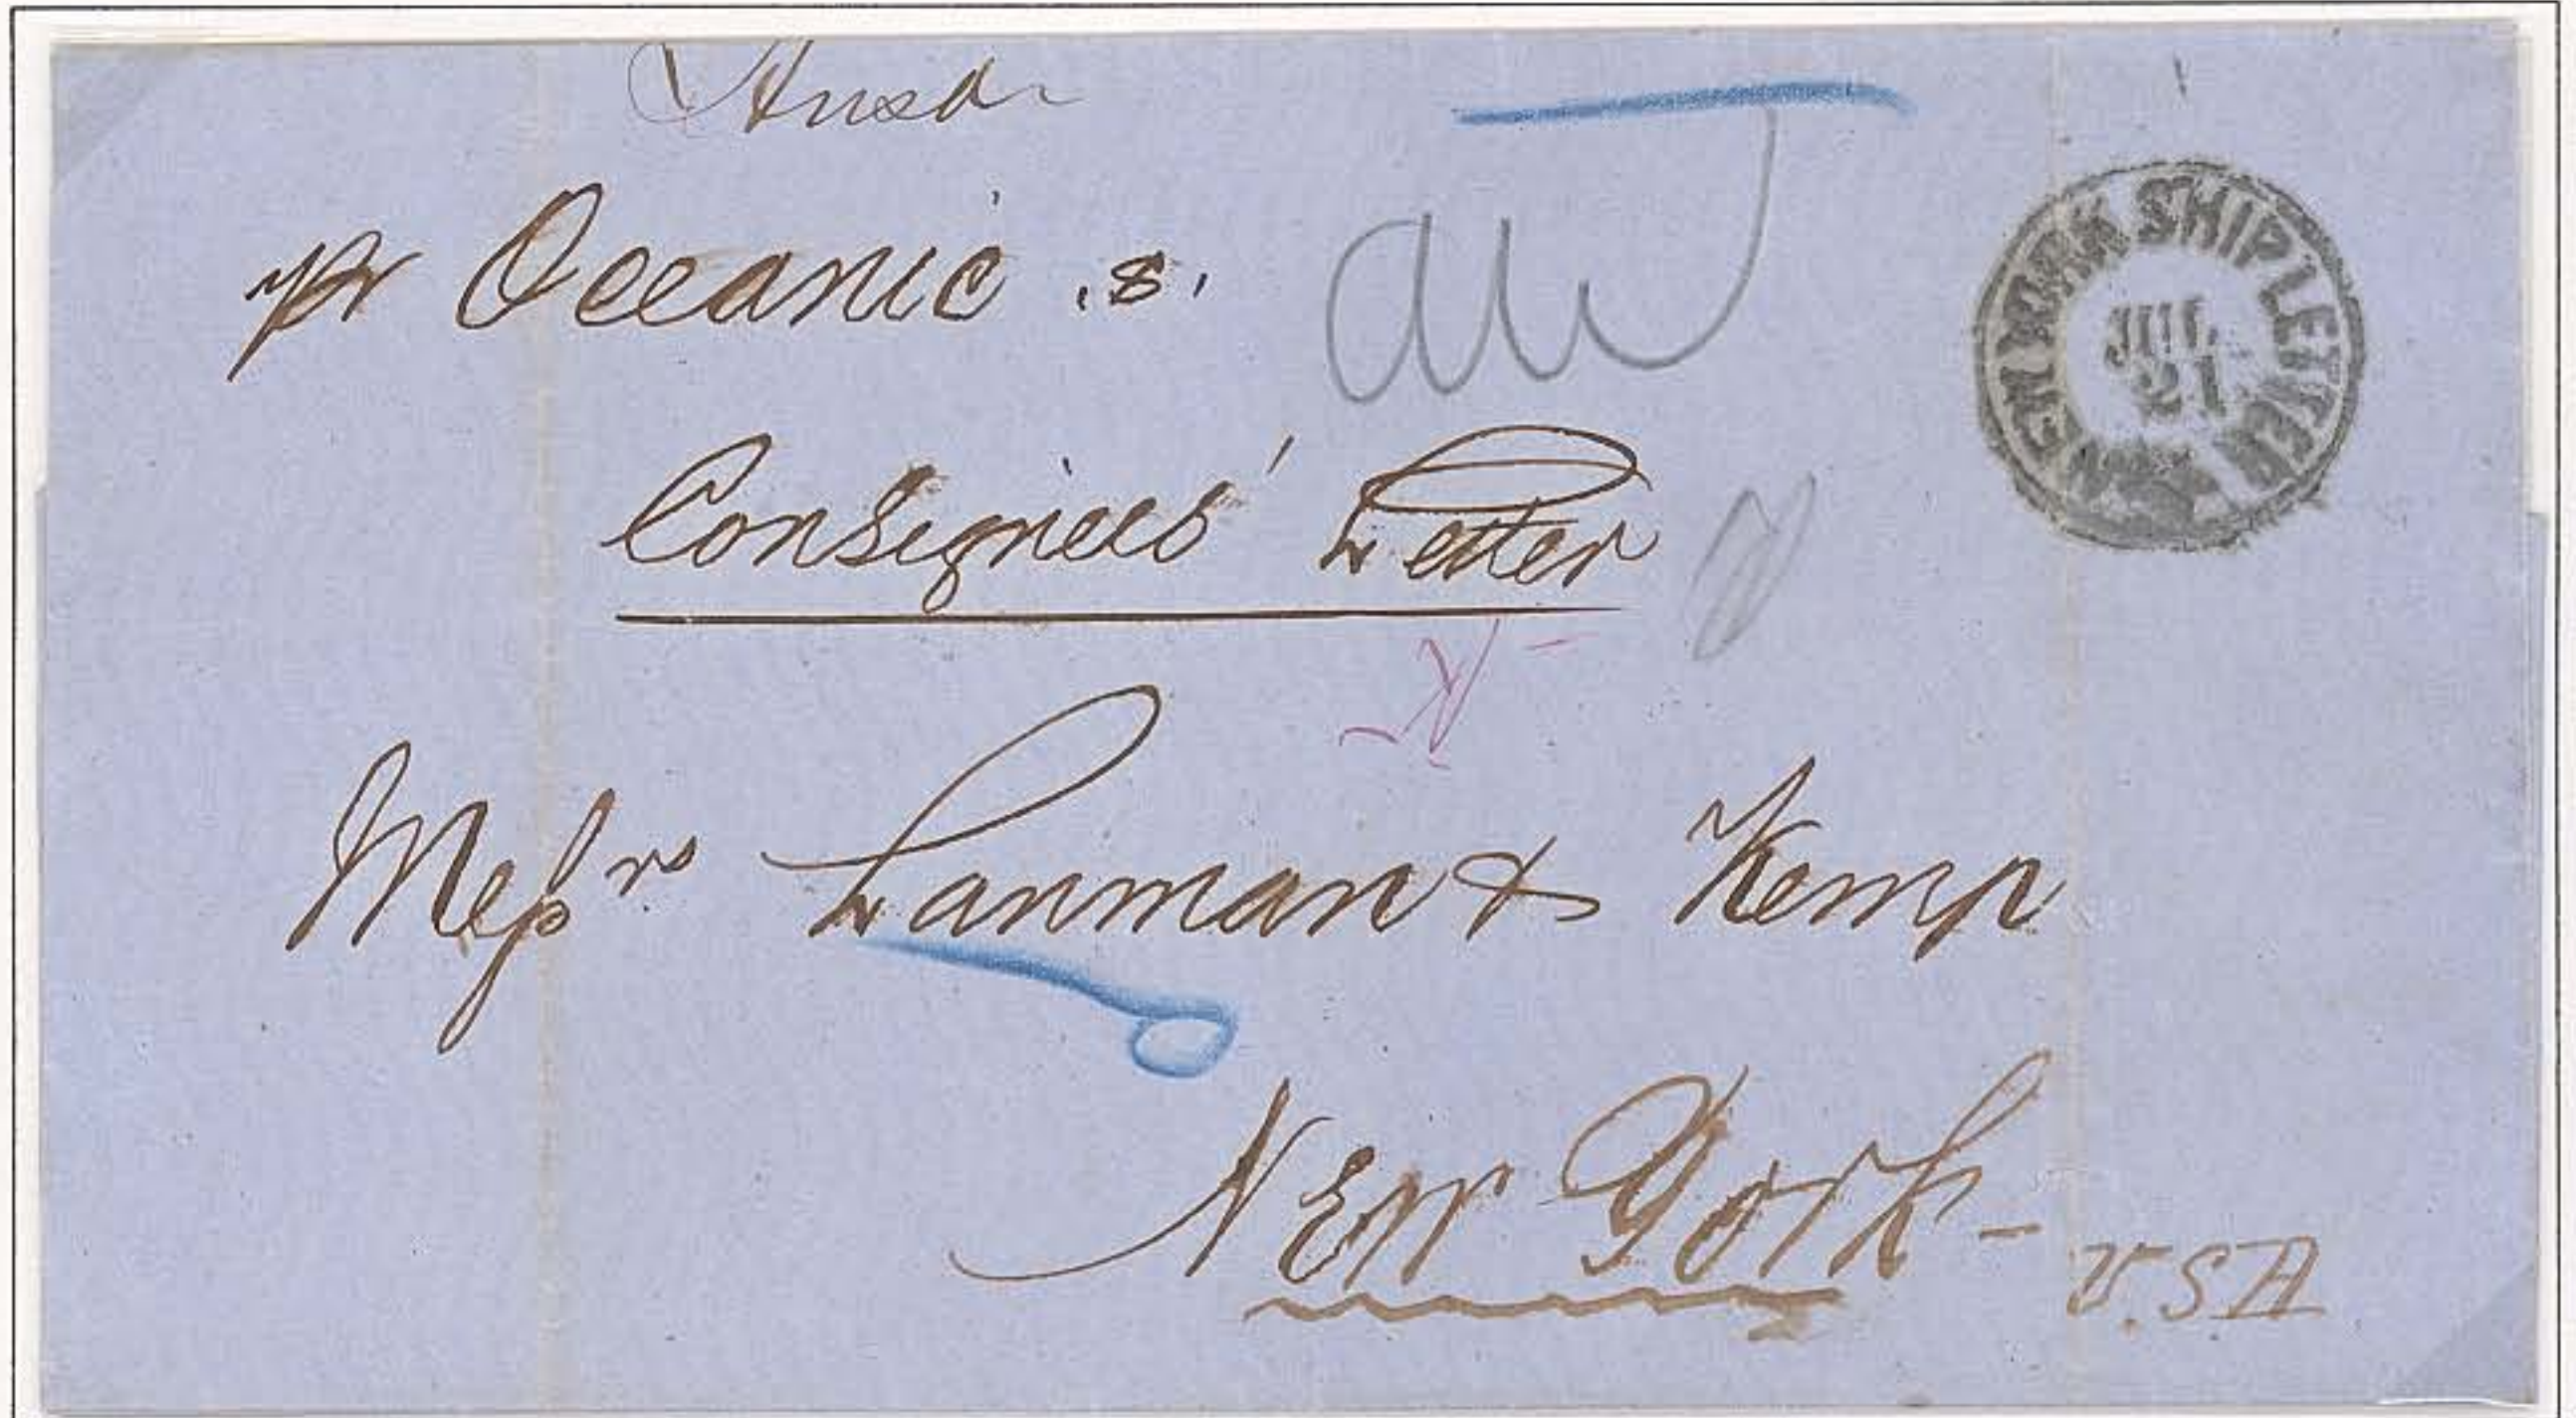 pr Oceanic .s.
NEW YORK SHIP LETTER
JUL
21
Consignees' Letter
Messrs Lanman & Kemp
New York -
U.S.A